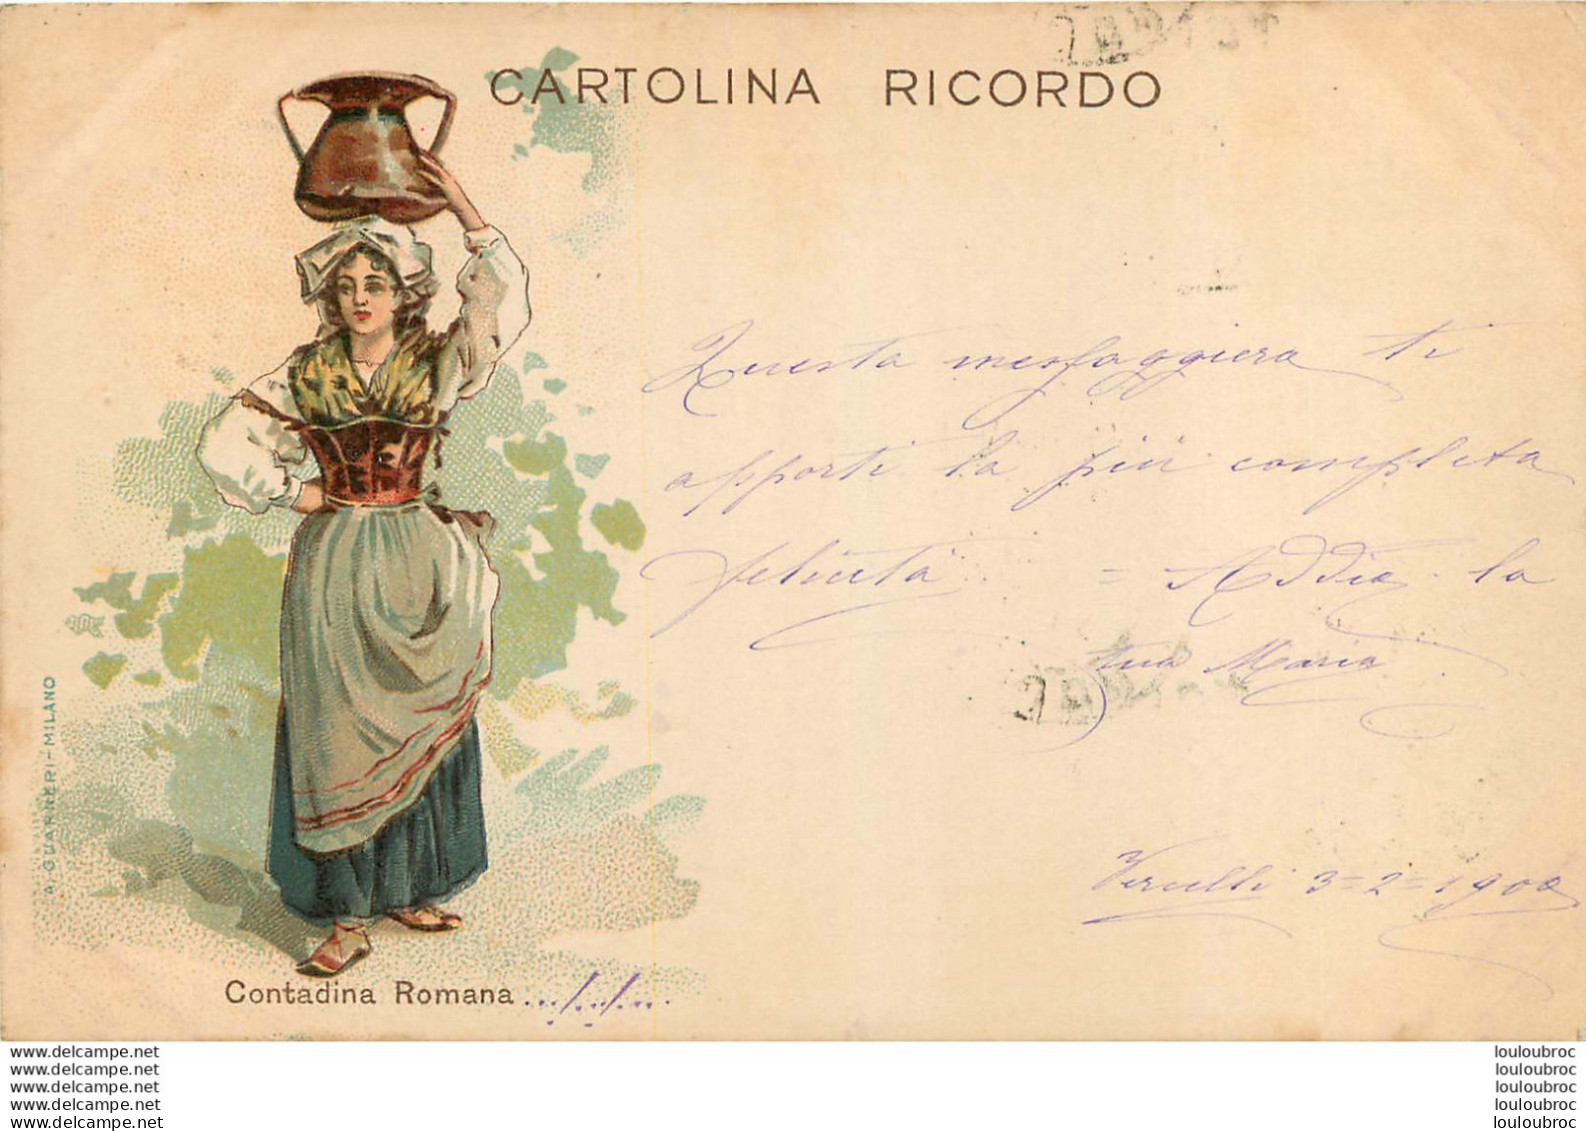 CARTOLINA RICORDO
Questa messaggiera ti
apporti la più completa
felicità = Addio la
tua Maria
Vercelli 3=2=1900
A. GUARNERI-MILANO
Contadina Romana
www.delcampe.net
www.delcampe.net
www.delcampe.net
www.delcampe.net
www.delcampe.net
louloubroc
louloubroc
louloubroc
louloubroc
louloubroc